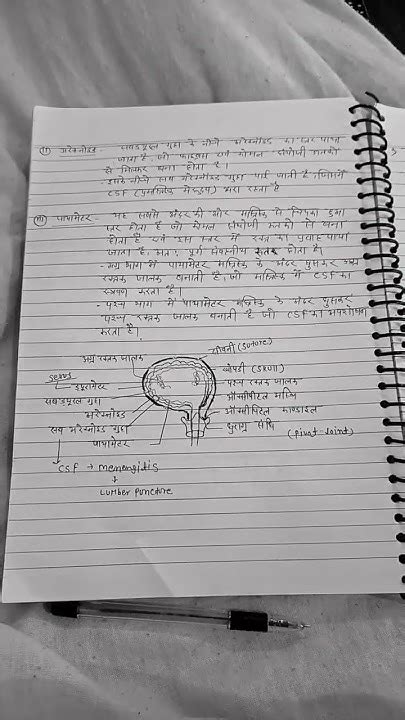 (ii) अरेक्नोइड - सबड्यूरल गुहा के नीचे अरेक्नोइड का स्तर पाया
जाता है, जो फाइब्रस एवं कोमल संयोजी ऊतकों
से मिलकर बना होता है।
- इसके नीचे सब अरेक्नोइड गुहा पाई जाती है, जिसमें
CSF भरा रहता है
(iii) पायामेटर - यह सबसे अंदर की ओर मस्तिष्क से चिपका हुआ
स्तर होता है जो कोमल संयोजी ऊतकों से बना
होता है एवं इस स्तर में रक्त का प्रवाह पाया
जाता है, अतः पूर्ण संवहनीय स्तर होता है।
- अग्र भाग में पायामेटर मस्तिष्क के अंदर घुसकर अग्र
रक्तक जालक बनाती है, जो मस्तिष्क में CSF का
स्त्रवण करता है।
- पश्च भाग में पायामेटर मस्तिष्क के अंदर घुसकर
पश्च रक्तक जालक बनाती है जो CSF का अवशोषण
करता है।
अग्र रक्तक जालक
सीवनी (suture)
खोपड़ी (skull)
ड्यूरामेटर
पश्च रक्तक जालक
सबड्यूरल गुहा
अरेक्नोइड
सब अरेक्नोइड गुहा
पायामेटर
ऑक्सीपिटल काण्डाइल
संधि
(pivot-Joint)
CSF → menengitis
↓
Lumber puncture